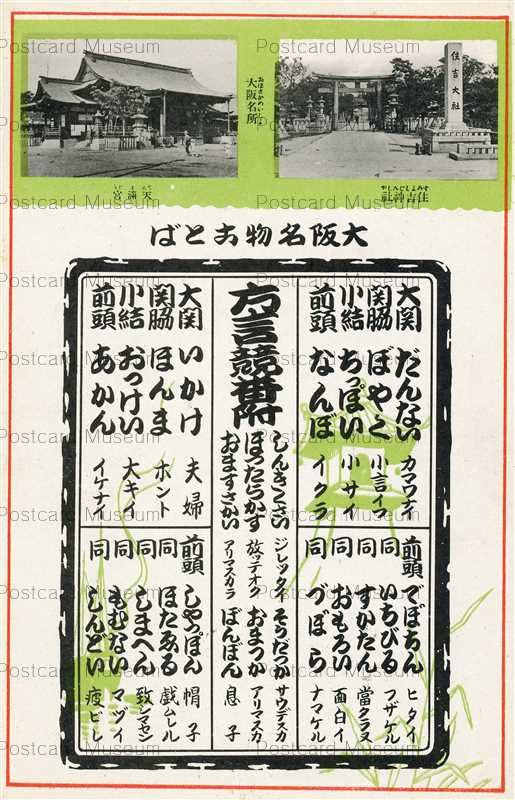 おほさかめいしよ
大阪名所
住吉大社
すみよしじんしや
住吉神社
てんまぐう
天満宮
大阪名物ことば
方言競番附
大関 だんない カマワナイ
関脇 ぼやく 小言イフ
小結 ちっぽい 小サイ
前頭 なんぼ イクラ
前頭 でぼちん ヒタイ
同 いちびる フザケル
同 すかたん 當クラヌ
同 おもろい 面白イ
同 づぼら ナマケル
しんきくさい ジレッタイ
ほったらかす 放ッテオク
おますさかい アリマスカラ
そうだっか サウデスカ
おまっか アリマスカ
ぼんぼん 息子
大関 いかけ 夫婦
関脇 ほんま ホント
小結 おっけい 大キイ
前頭 あかん イケナイ
前頭 しやっぽん 帽子
同 ほたゑる 戯ムレル
同 しまへん 致シマセン
同 もむない マヅイ
同 しんどい 疲ビレ
Postcard Museum